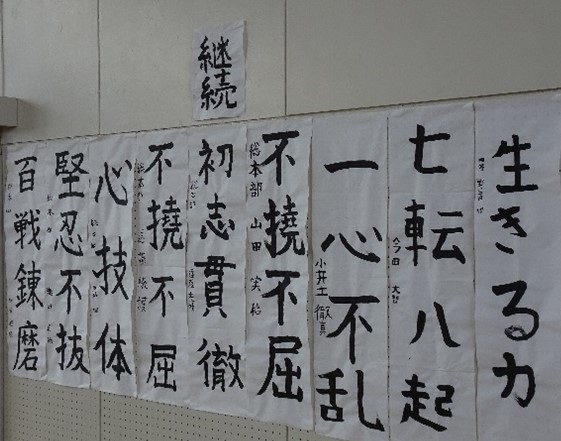 継続
生きる力
七転八起
今田
一心不乱
小井土 徹真
不撓不屈
総本部 山田
初志貫徹
不撓不屈
心技体
堅忍不抜
百戦錬磨